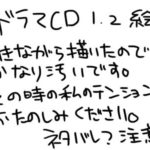 ドラマCD 1.2 絵
きながら描いたので
かなり汚いです。
の時の私のテンション
ふたのしみください。
ネタバレ?注意